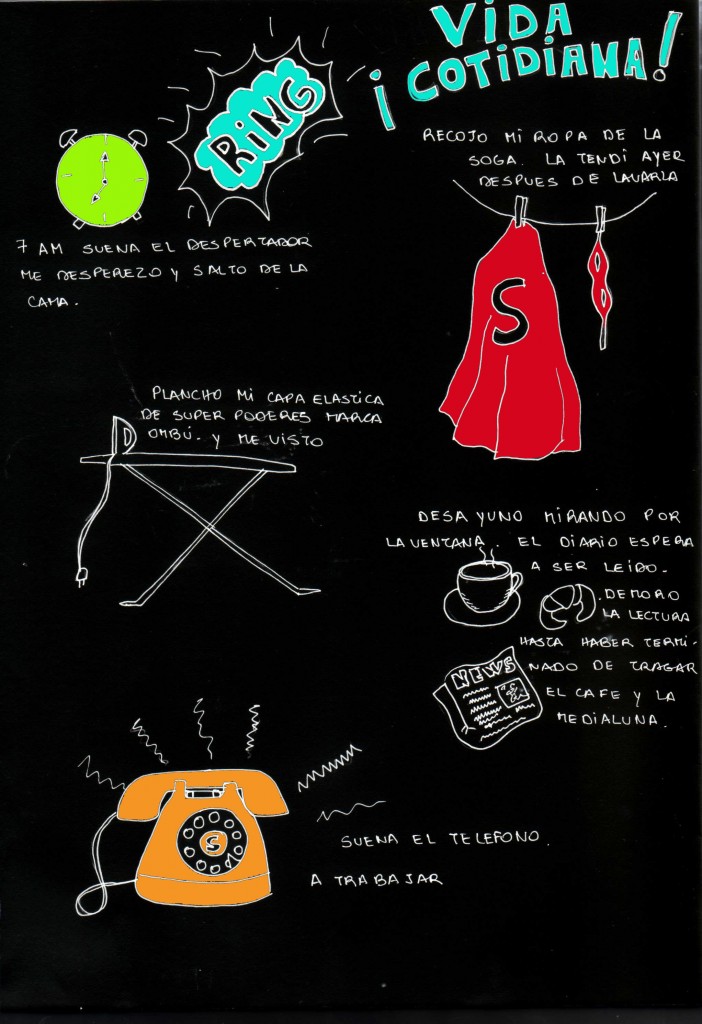 VIDA
¡COTIDIANA!
RING
7 AM SUENA EL DESPERTADOR
ME DESPEREZO Y SALTO DE LA
CAMA.
RECOJO MI ROPA DE LA
SOGA. LA TENDI AYER
DESPUES DE LAVARLA
S
PLANCHO MI CAPA ELASTICA
DE SUPER PODERES MARCA
OMBÚ. Y ME VISTO
DESAYUNO MIRANDO POR
LA VENTANA. EL DIARIO ESPERA
A SER LEIDO.
DEMORO
LA LECTURA
HASTA HABER TERMI-
NADO DE TRAGAR
EL CAFE Y LA
MEDIALUNA.
NEWS
S
SUENA EL TELEFONO.
A TRABAJAR